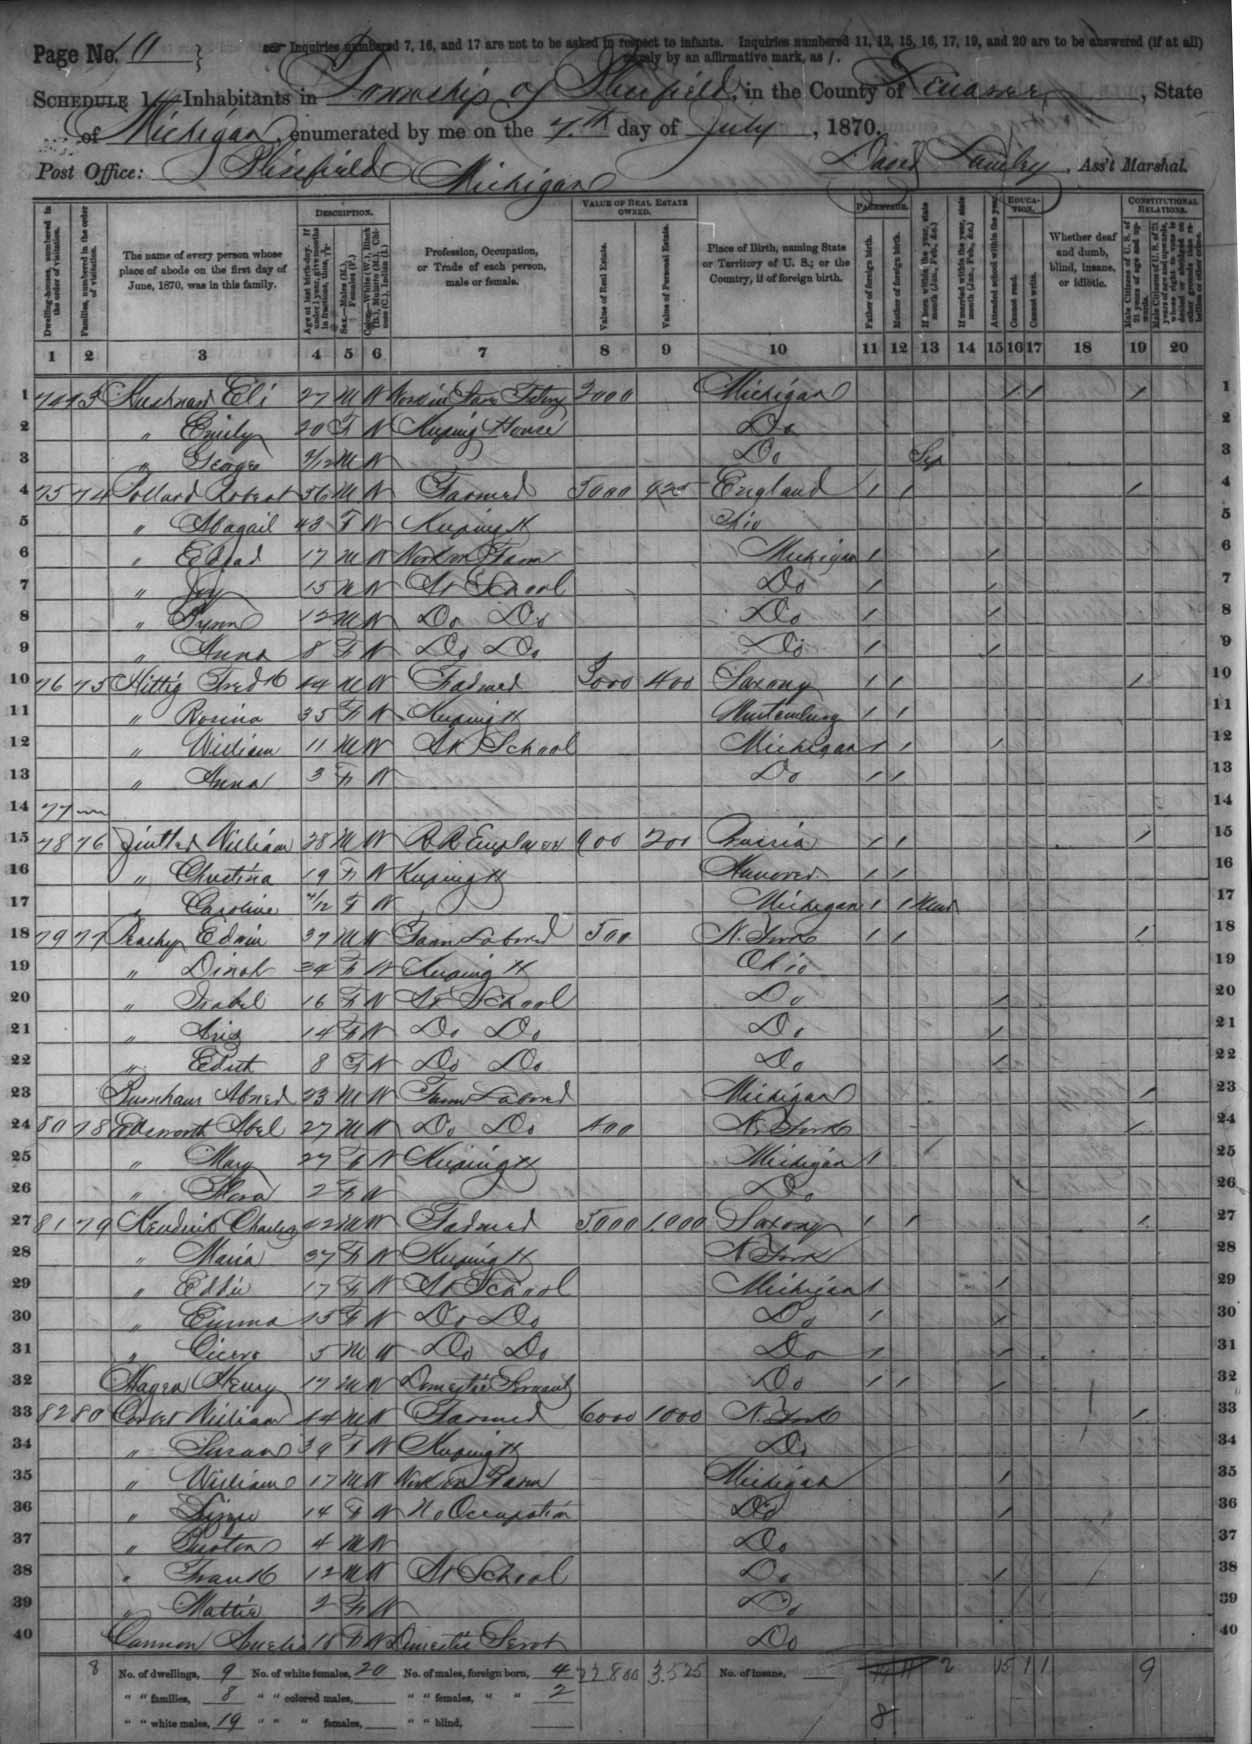 Page No. 10
Inquiries numbered 7, 16, and 17 are not to be asked in respect to infants. Inquiries numbered 11, 12, 15, 16, 17, 19, and 20 are to be answered (if at all)
merely by an affirmative mark, as /.
SCHEDULE 1.—Inhabitants in Township of Blissfield, in the County of Lenawee, State
of Michigan, enumerated by me on the 7th day of July, 1870.
Post Office: Blissfield Michigan David, Ass't Marshal.
DESCRIPTION. VALUE OF REAL ESTATE OWNED. PARENTAGE. EDUCATION. CONSTITUTIONAL RELATIONS.
Dwelling-houses, numbered in the order of visitation.
Families, numbered in the order of visitation.
The name of every person whose place of abode on the first day of June, 1870, was in this family.
Age at last birth-day. If under 1 year, give months in fractions, thus, 3/12
Sex.—Males (M.), Females (F.)
Color.—White (W.), Black (B.), Mulatto (M.), Chinese (C.), Indian (I.)
Profession, Occupation, or Trade of each person, male or female.
Value of Real Estate.
Value of Personal Estate.
Place of Birth, naming State or Territory of U. S.; or the Country, if of foreign birth.
Father of foreign birth.
Mother of foreign birth.
If born within the year, state month (Jan., Feb., &c.)
If married within the year, state month (Jan., Feb., &c.)
Attended school within the year.
Cannot read.
Cannot write.
Whether deaf and dumb, blind, insane, or idiotic.
Male Citizens of U. S. of 21 years of age and upwards.
1 2 3 4 5 6 7 8 9 10 11 12 13 14 15 16 17 18 19 20
1 74 73 Eli 27 M W 2000 Michigan / / / 1
2 " Emily 20 F W Keeping House Do 2
3 " George M W Do Sep 3
4 75 74 Pollard Robert 56 M W Farmer 5000 925 England / / / 4
5 " Abagail 43 F W Keeping H Ohio 5
6 " 17 M W Work on Farm Michigan / / 6
7 " 15 M W At School Do / / 7
8 " 12 M W Do Do Do / / 8
9 " Anna 8 F W Do Do Do / / 9
10 76 75 Hittig Fredk 44 M W Farmer 3000 400 Saxony / / / 10
11 " Rosina 35 F W Keeping H Wurtemburg / / 11
12 " William 11 M W At School Michigan / / / 12
13 " Anna 3 F W Do / / 13
14 77 — 14
15 78 76 William 28 M W R R Employee 900 200 Prussia / / / 15
16 " Christina 19 F W Keeping H Hanover / / 16
17 " Caroline F W Michigan / / 17
18 79 77 Edwin 37 M W Farm Laborer 500 N. York / / / 18
19 " Dinah 34 F W Keeping H Ohio 19
20 " Isabel 16 F W At School Do / 20
21 " 14 F W Do Do Do / 21
22 " Edith 8 F W Do Do Do / 22
23 Burnham Abner 23 M W Farm Laborer Michigan / 23
24 80 78 Ellsworth Abel 27 M W Do Do 400 N. York / 24
25 " Mary 27 F W Keeping H Michigan / 25
26 " Flora 2 F W Do 26
27 81 79 Kendrick Charles 42 M W Farmer 5000 1.000 Saxony / / / 27
28 " Maria 37 F W Keeping H N York 28
29 " Eddie 17 F W At School Michigan / / 29
30 " Emma 15 F W Do Do Do / / 30
31 " Cicero 5 M W Do Do Do / / 31
32 Hagen Henry 17 M W Domestic Servant Do / / / 32
33 82 80 William 44 M W Farmer 6000 1000 N. York / 33
34 " Susan 39 F W Keeping H Do 34
35 " William 17 M W Work on Farm Michigan / 35
36 " Lizzie 14 F W No Occupation Do / 36
37 " Burton 4 M W Do 37
38 " Frank 12 M W At School Do / 38
39 " Mattie 2 F W Do 39
40 Cannon Amelia F W Domestic Servt Do 40
8 No. of dwellings, 9 No. of white females, 20 No. of males, foreign born, 4 22.800 3.525 No. of insane, 2 15 1 1 9
" " families, 8 " " colored males, " " females, " " 2
" " white males, 19 " " " females, " " blind, 8